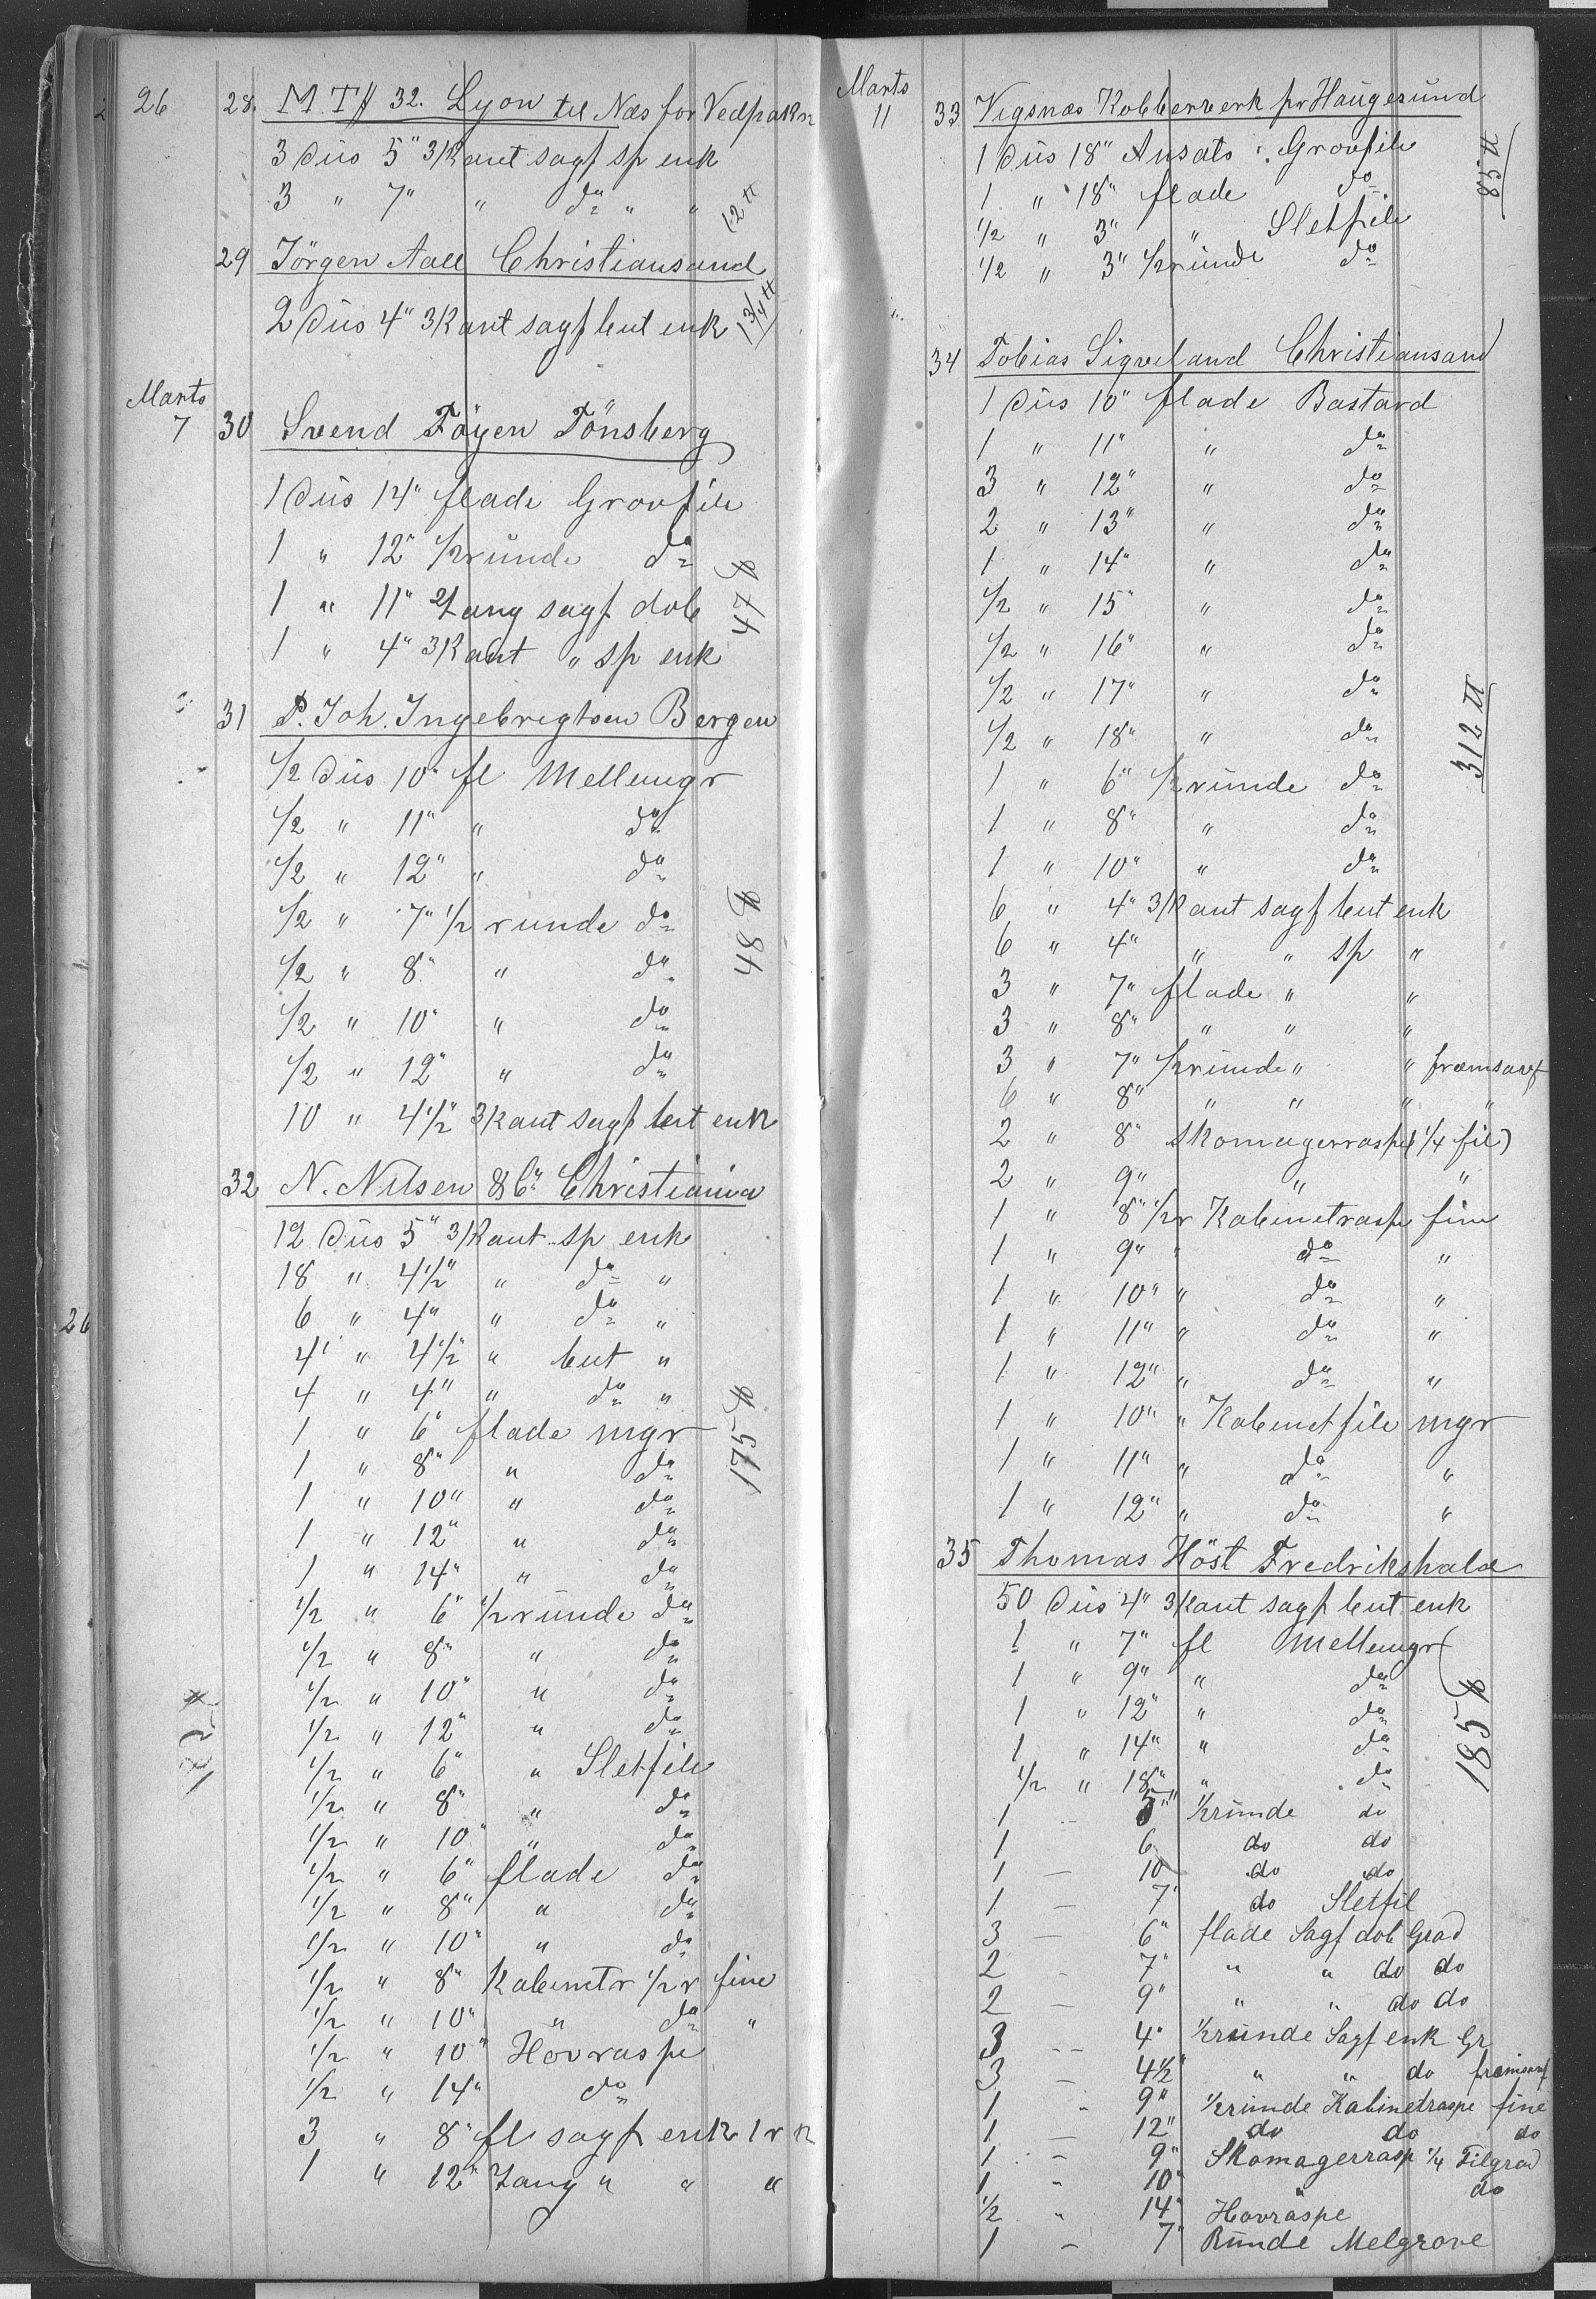 26 28. M.T.# 32. Lyon til Næs for Vedpakn
3 Düs 5" 3/Kant sagf sp enk
3 " 7" " do " "
12 ℔
29 Jörgen Aall Christiansand
2 Düs 4" 3/Kant sagf but enk
1 3/4 ℔
Marts
7 30 Svend Föyen Tönsberg
1 Düs 14" flade Grovfile
1 " 12" 1/2 rŭnde do
1 " 11" Lang sagf dob
1 " 4" 3/Kant " sp enk
47 ℔
31 P. Joh. Ingebrigtsen Bergen
1/2 Düs 10" fl Mellemgr
1/2 " 11" " do
1/2 " 12" " do
1/2 " 7" 1/2 runde do
1/2 " 8" " do
1/2 " 10" " do
1/2 " 12" " do
10 " 4 1/2" 3/Kant sagf but enk
48 ℔
32 N. Nilsen & Co Christiania
12 Düs 5" 3/Kant sp enk
18 " 4 1/2" " do "
6 " 4" " do "
4 " 4 1/2" " but "
4 " 4" " do "
1 " 6" flade mgr
1 " 8" " do
1 " 10" " do
1 " 12" " do
1 " 14" " do
1/2 " 6" 1/2 rŭnde do
1/2 " 8" " do
1/2 " 10" " do
1/2 " 12" " do
1/2 " 6" " Sletfile
1/2 " 8" " do
1/2 " 10" " do
1/2 " 6" flade do
1/2 " 8" " do
1/2 " 10" " do
1/2 " 8" Kabinetr 1/2 r fine
1/2 " 10" " do "
1/2 " 10" Hovraspe
1/2 " 14" do
3 " 8" fl sagf enk 1 r k
1 " 12" Lang " " "
175 ℔
26
Marts
11 33 Vigsnæs Kobberverk pr Haŭgesŭnd
1 Düs 18" Ansats Grovfile
1 " 18" flade do
1/2 " 3" " Sletfile
1/2 " 3" 1/2 rŭnde do
58 ℔
34 Tobias Sigveland Christiansand
1 Düs 10" flade Bastard
1 " 11" " do
3 " 12" " do
2 " 13" " do
1 " 14" " do
1/2 " 15" " do
1/2 " 16" " do
1/2 " 17" " do
1/2 " 18" " do
1 " 6" 1/2 rŭnde do
1 " 8" " do
1 " 10" " do
6 " 4" 3/Kant sagf but enk
6 " 4" " " sp "
3 " 7" flade " "
3 " 8" " " "
3 " 7" 1/2 rŭnde " "
6 " 8" " " " "
2 " 8" Skomagerraspe (1/4 fil)
2 " 9" " "
1 " 8" 1/2 r Kabinetraspe fine
1 " 9" " do "
1 " 10" " do "
1 " 11" " do "
1 " 12" " do "
1 " 10" " Kabinetfile mgr
1 " 11" " do "
1 " 12" " do "
312 ℔
35 Thomas Höst Fredrikshald
50 Düs 4" 3/Kant sagf but enk
1 " 7" fl Mellemgr
1 " 9" " do
1 " 12" " do
1 " 14" " do
1/2 " 18" " do
1 - 5" 1/2 rŭnde do
1 6 do do
1 — 10 do do
1 — 7" do Sletfil
3 — 6" flade Sagf dob Grad
2 - 7" " " do do
2 — 9" " " do do
3 - 4" 1/2 rŭnde Sagf enk Gr
3 — 4 1/2" " " do
1 - 9" 1/2 rŭnde Kabinetraspe fine
1 — 12" do do do
1 - 9" Skomagerrasp 1/4 Filgrad
1 - 10" " do
1/2 " 14" Hovraspe
1 — 7" Rŭnde Melgrove
185 ℔